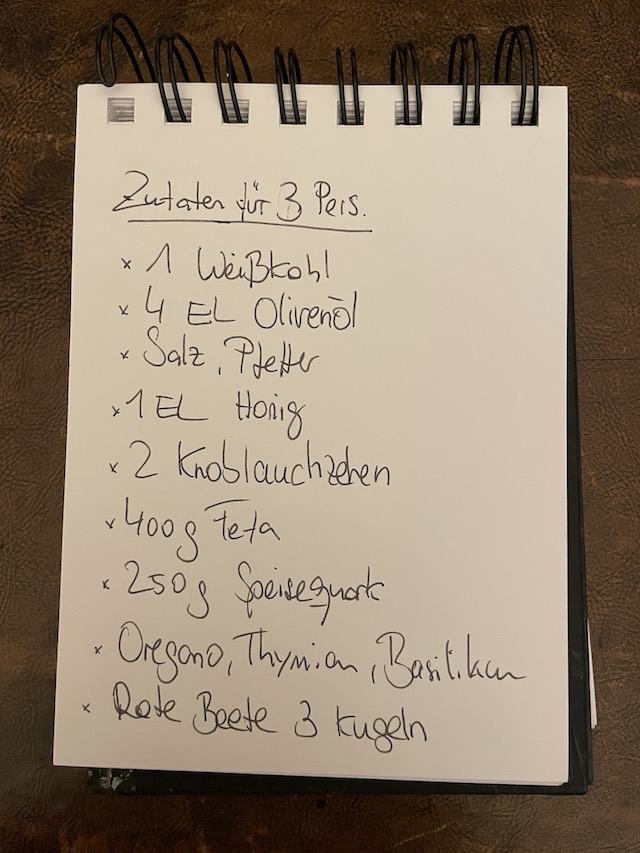 Zutaten für 3 Pers.
× 1 Weißkohl
× 4 EL Olivenöl
× Salz, Pfeffer
× 1 EL Honig
× 2 Knoblauchzehen
× 400g Feta
× 250g Speisequark
× Oregano, Thymian, Basilikum
× Rote Beete 3 Kugeln